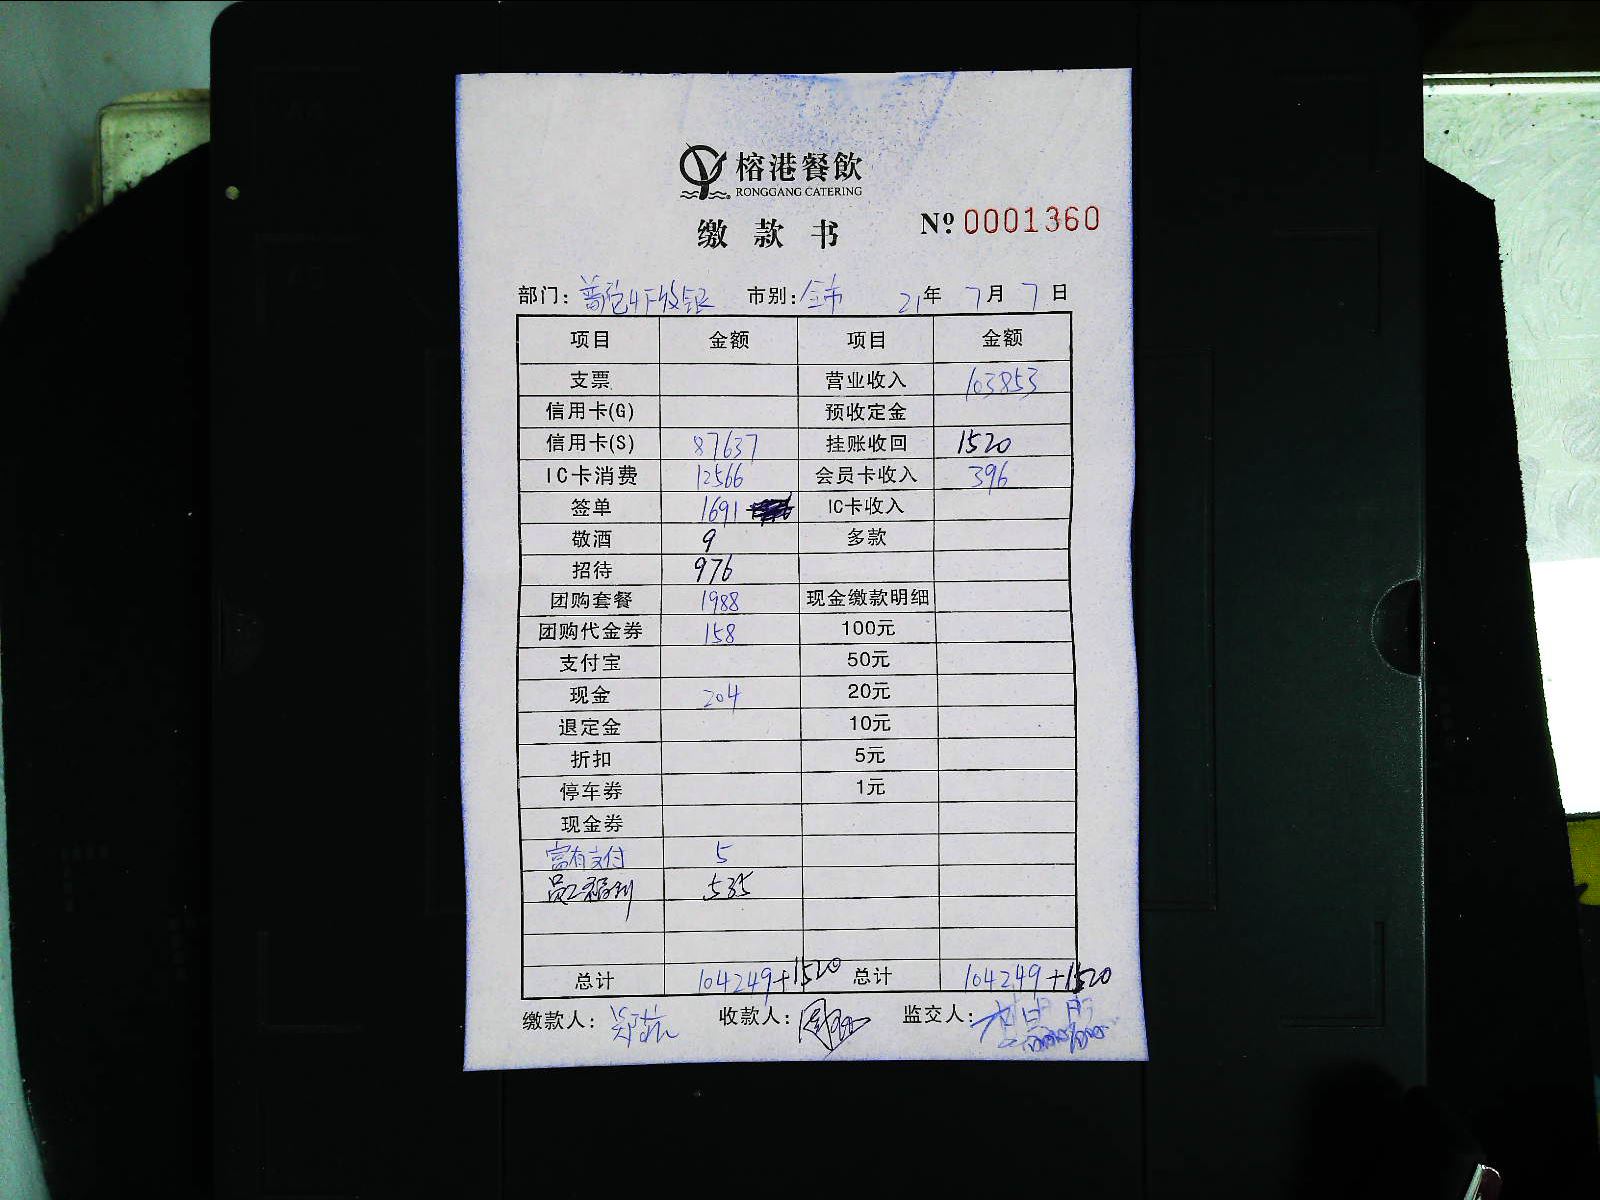 榕港餐飲
RONGGANG CATERING
缴款书 Nº 0001360
部门: 市别:全市 21年 7月 7日
项目 金额 项目 金额
支票 营业收入 103853
信用卡(G) 预收定金
信用卡(S) 87637 挂账收回 1520
IC卡消费 12566 会员卡收入 396
签单 1691 IC卡收入
敬酒 9 多款
招待 976
团购套餐 1988 现金缴款明细
团购代金券 158 100元
支付宝 50元
现金 204 20元
退定金 10元
折扣 5元
停车券 1元
现金券
富有支付 5
员工福利 535
总计 104249+1520 总计 104249+1520
缴款人: 收款人: 监交人: